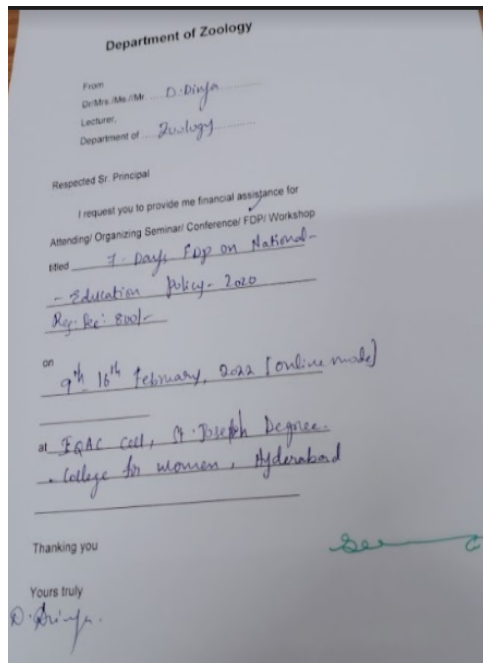 Department of Zoology
From
Dr/Mrs./Ms./Mr. .... D. Divya ..........
Lecturer,
Department of .... Zoology ..........
Respected Sr. Principal
I request you to provide me financial assistance for
Attending/ Organizing Seminar/ Conference/ FDP/ Workshop
titled 7- Days FDP on National-
- Education Policy- 2020
Reg. fee: 800/-
on
9th- 16th February, 2022 [online mode]
at IQAC Cell, St. Joseph Degree.
College for women, Hyderabad
Thanking you
Yours truly
D. Divya.